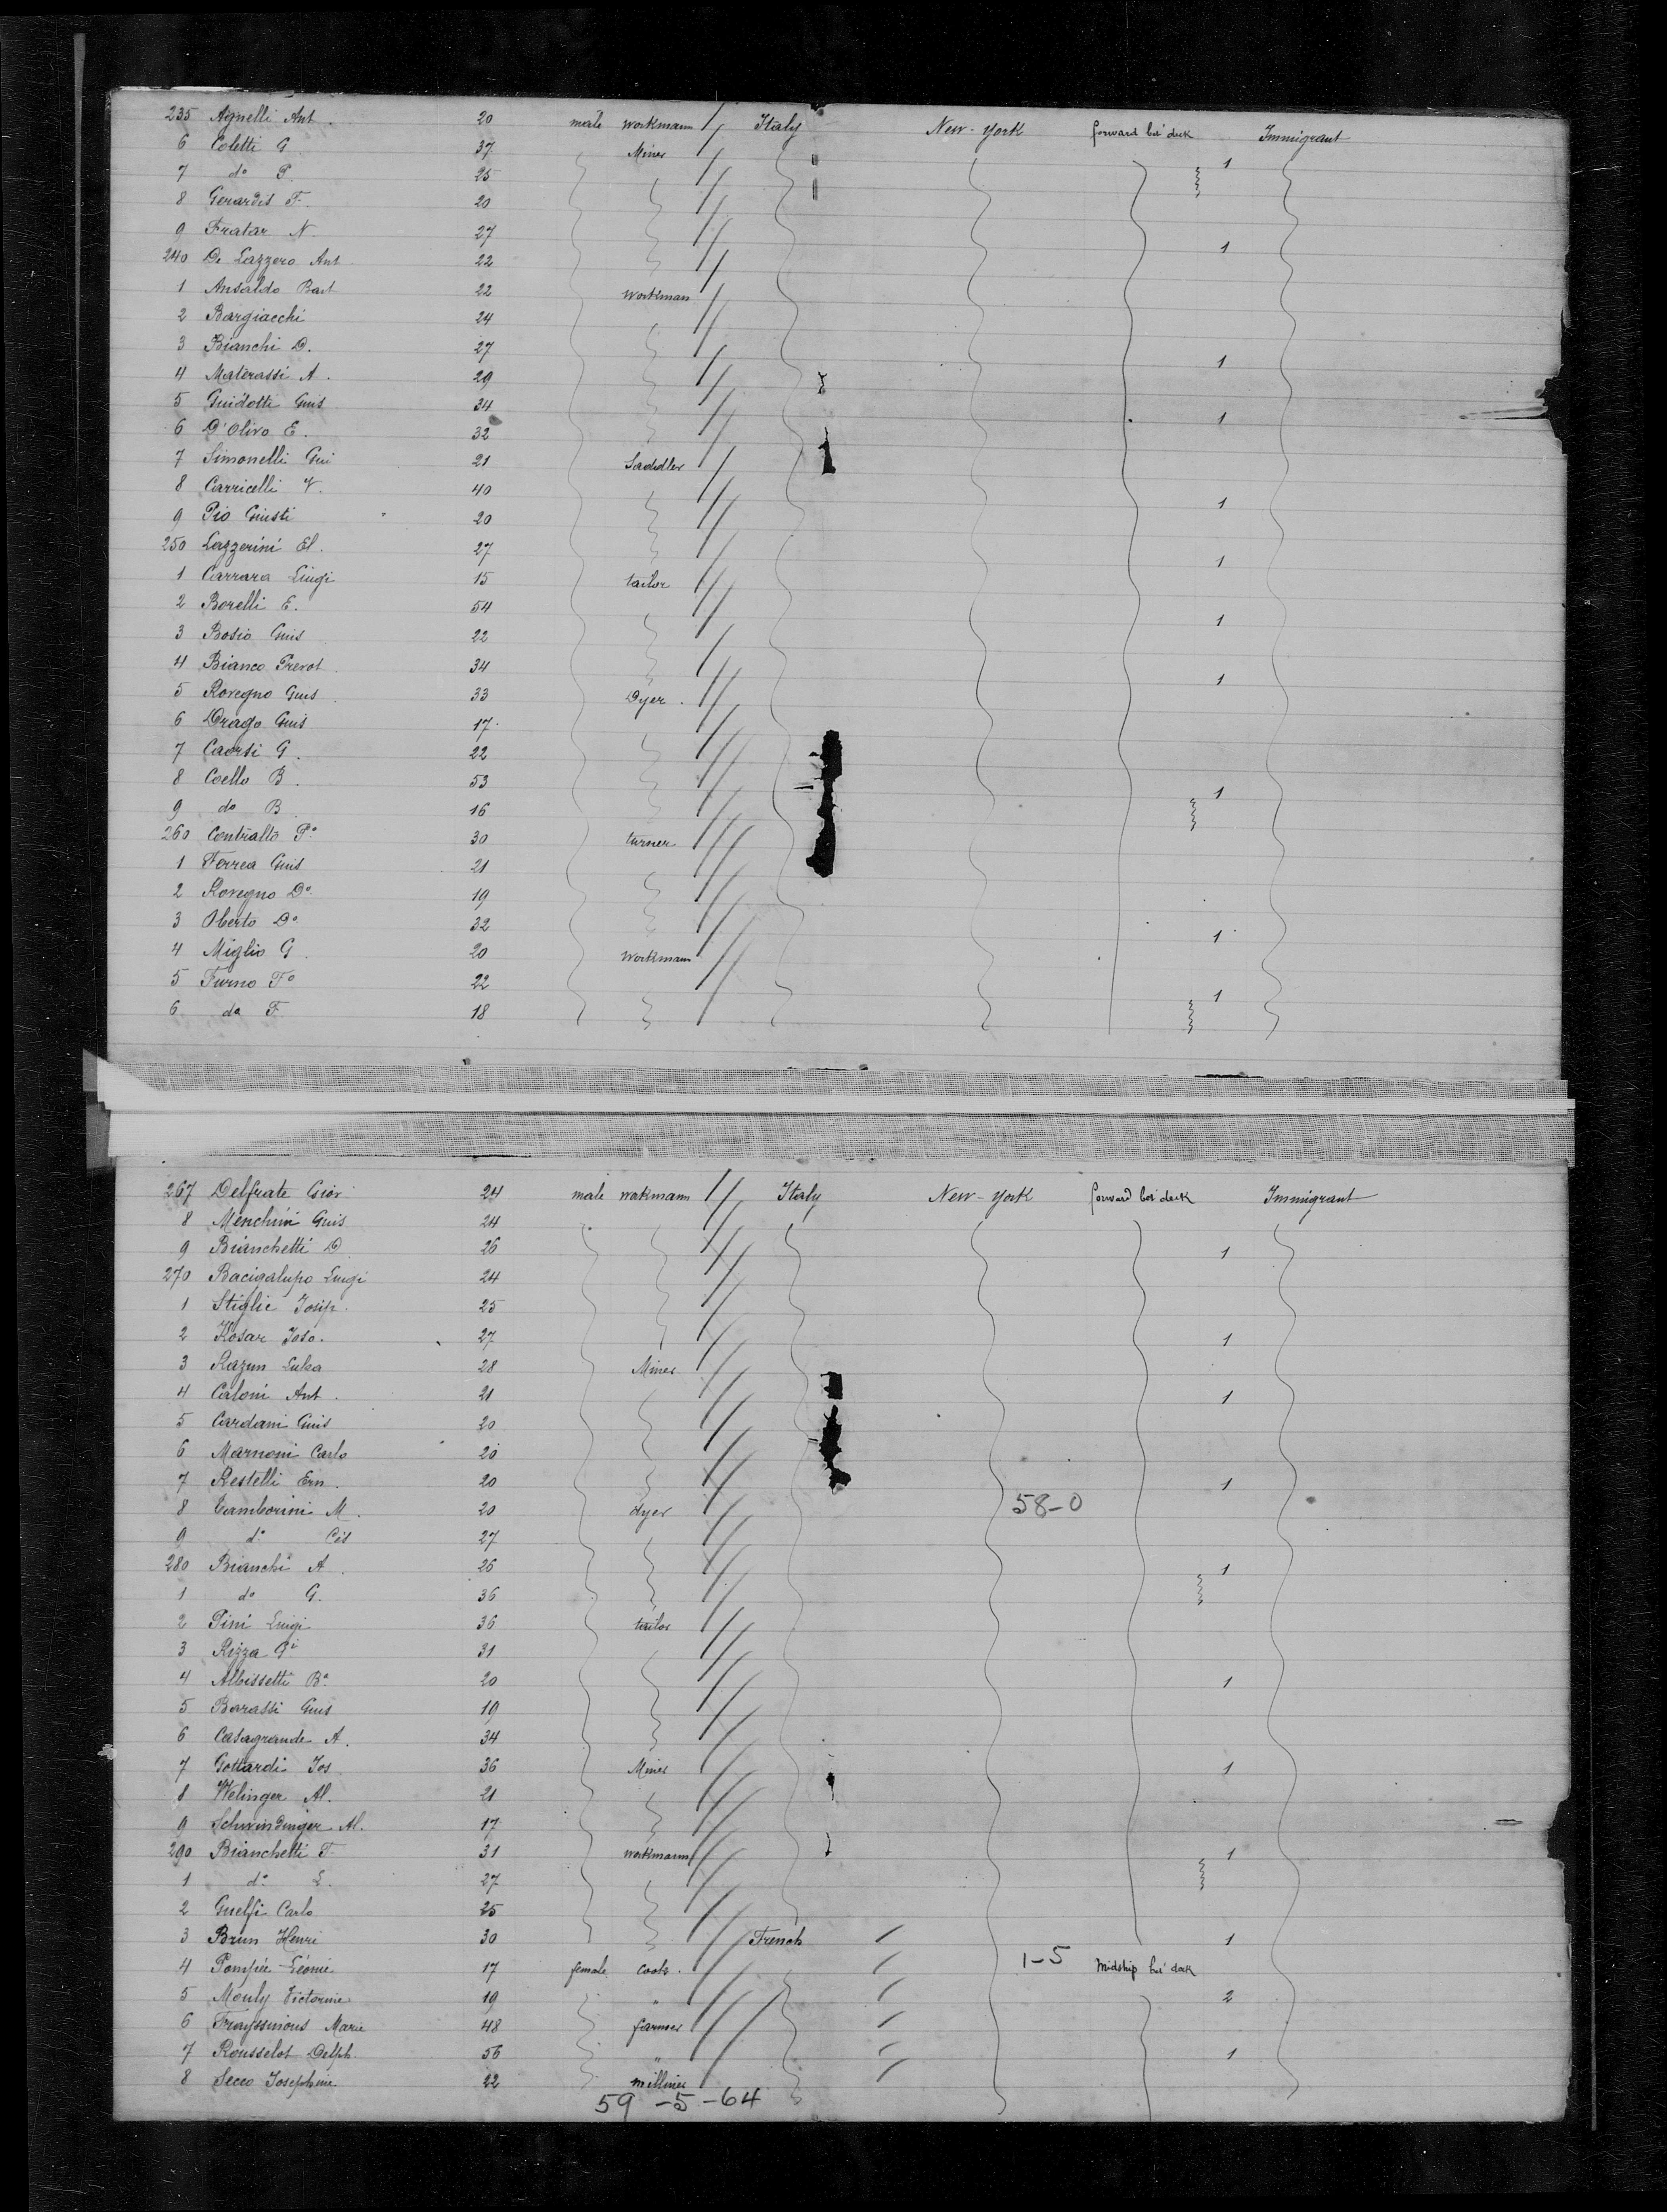 235 Agnelli Ant. 20 male workmann Italy New-York forward bet' deck Immigrant
6 Coletti G 37 Miner 1
7 do P. 25
8 Gerardis F. 20
9 Fratar N. 27
240 De Lazzero Ant 22 1
1 Ansaldo Bart 22 workman
2 Bargiacchi 24
3 Bianchi D. 27
4 Materassi A. 29 1
5 Guidotti Guis 34
6 D'Olivo E. 32 1
7 Simonelli Gui 21 Sadidler
8 Carricelli V. 40
9 Pio Giusti 20 1
250 Lazzerini El. 27
1 Carrara Luigi 15 tailor 1
2 Borelli E. 54
3 Bosio Guis 22 1
4 Bianco Prevot 34
5 Rovegno Guis 33 Dyer. 1
6 Drago Guis 17
7 Caorsi G. 22
8 Coello B. 53
9 do B 16 1
260 Contralto Po 30 turner
1 Ferrea Guis 21
2 Rovegno Do 19
3 Oberto Do 32
4 Miglio G. 20 workmann 1
5 Furno Fo 22
6 do F 18 1
267 Delfrate Giov 24 male workmann Italy New-York forward bet' deck Immigrant
8 Menchini Guis 24
9 Bianchetti D 26 1
270 Bacigalupo Luigi 24
1 Stiglic Josip. 25
2 Kosar Joso. 27 1
3 Razun Luka 28 Miner
4 Caloni Ant. 21 1
5 Cardani Guis 20
6 Marnoni Carlo 20
7 Restelli Ern. 20 1
8 Tamborini M. 20 dyer 58-0
9 do Ces 27
280 Bianchi A. 26 1
1 do G. 36
2 Pini Luigi 36 tailor
3 Rizza Gi 31
4 Albissetti Ba 20 1
5 Barassi Guis 19
6 Casagrande A. 34
7 Gottardi Jos 36 Miner 1
8 Welinger Al. 21
9 Schwindinger Al. 17
290 Bianchetti F. 31 workmann 1
1 do L. 27
2 Guelfi Carlo 25
3 Brun Henri 30 French 1
4 Pompée Léonie 17 female cook. 1-5 Midship bet' deck
5 Mouly Victorine 19 " 2
6 Frayssinous Marie 48 farmer
7 Rousselot Delph. 56 " 1
8 Secco Josephine 22 milliner
59 -5 -64